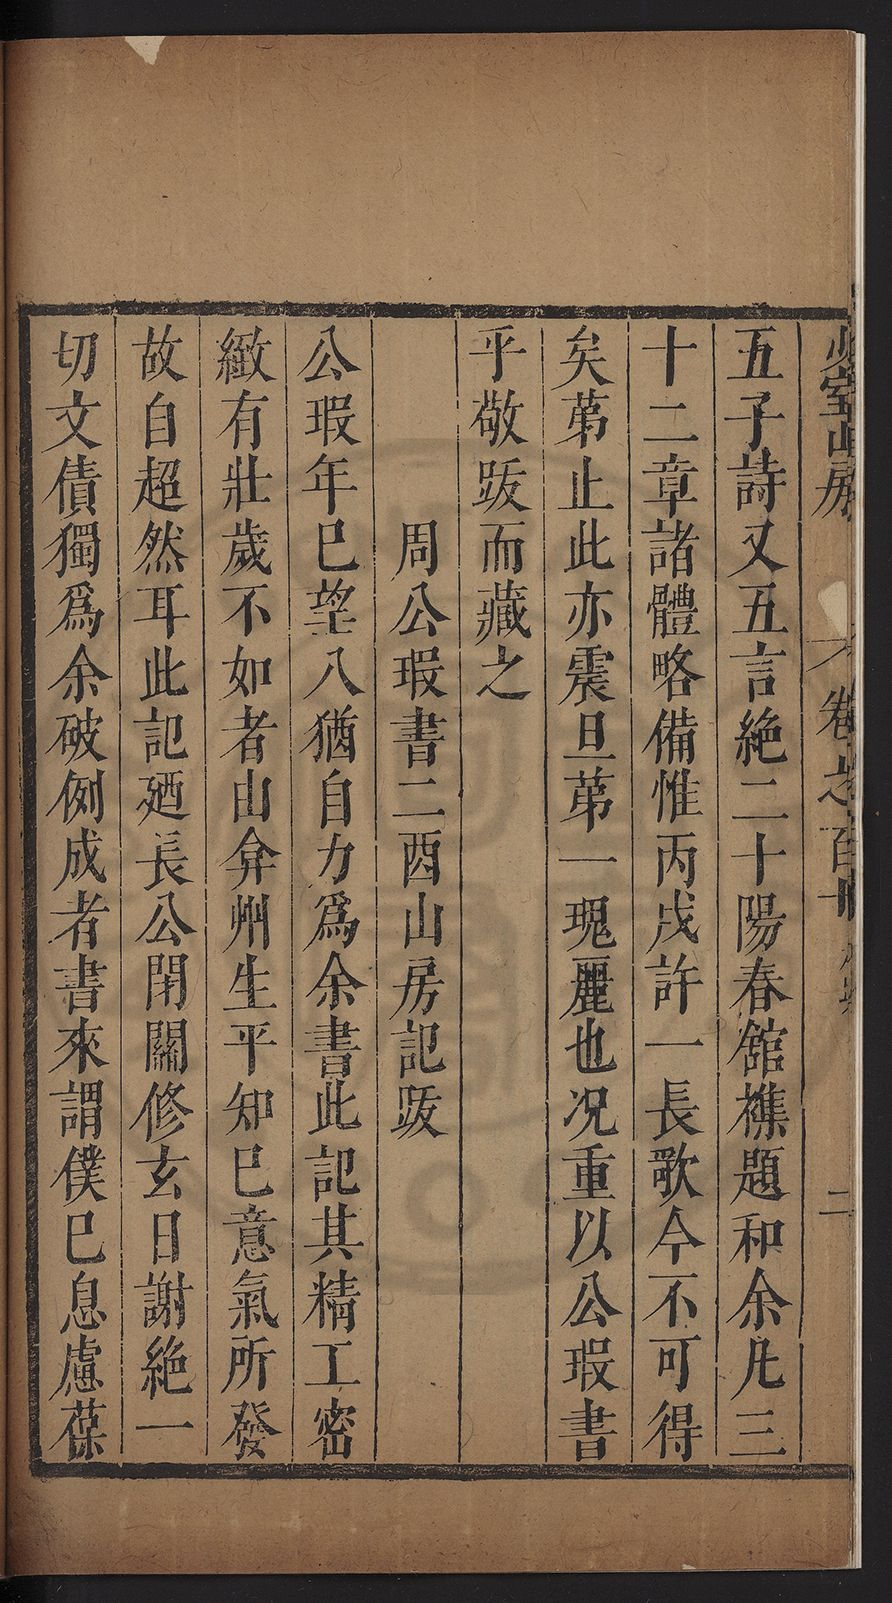 少室山房
卷之百十
二
五子詩又五言絶二十陽春舘襍題和余凡三
十二章諸體略備惟丙戌許一長歌今不可得
矣第止此亦震旦第一瑰麗也况重以公瑕書
乎敬跋而藏之
周公瑕書二酉山房記跋
公瑕年已望八猶自力爲余書此記其精工密
緻有壯歲不如者山弇州生平知已意氣所發
故自超然耳此記廼長公閉關修玄日謝絶一
切文債獨爲余破例成者書來謂僕已息慮葆